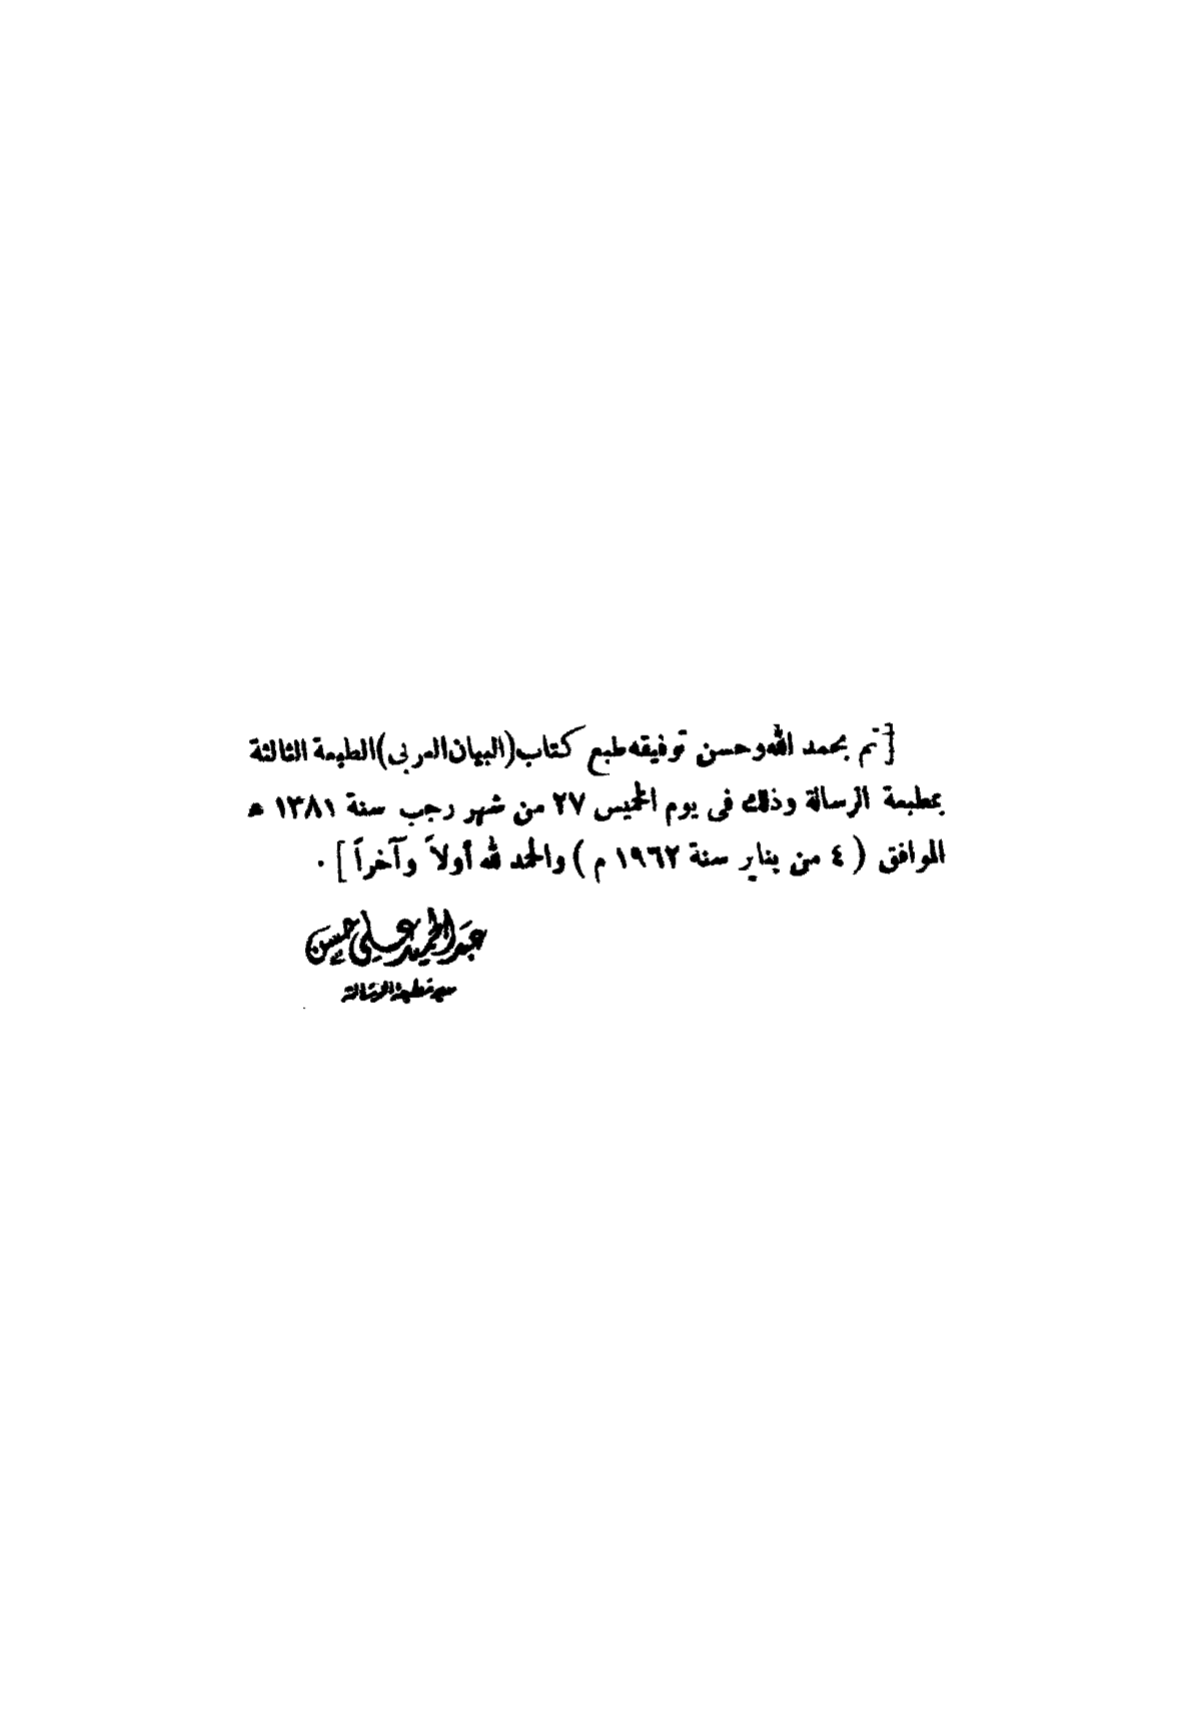 [ تم بحمد الله وحسن توفيقه طبع كتاب (البيان العربى) الطبعة الثالثة
بمطبعة الرسالة وذلك فى يوم الخميس ٢٧ من شهر رجب سنة ١٣٨١ هـ
الموافق ( ٤ من يناير سنة ١٩٦٢ م ) والحمد لله أولاً وآخراً ] .
عبد الحميد على حسين
مدير مطبعة الرسالة